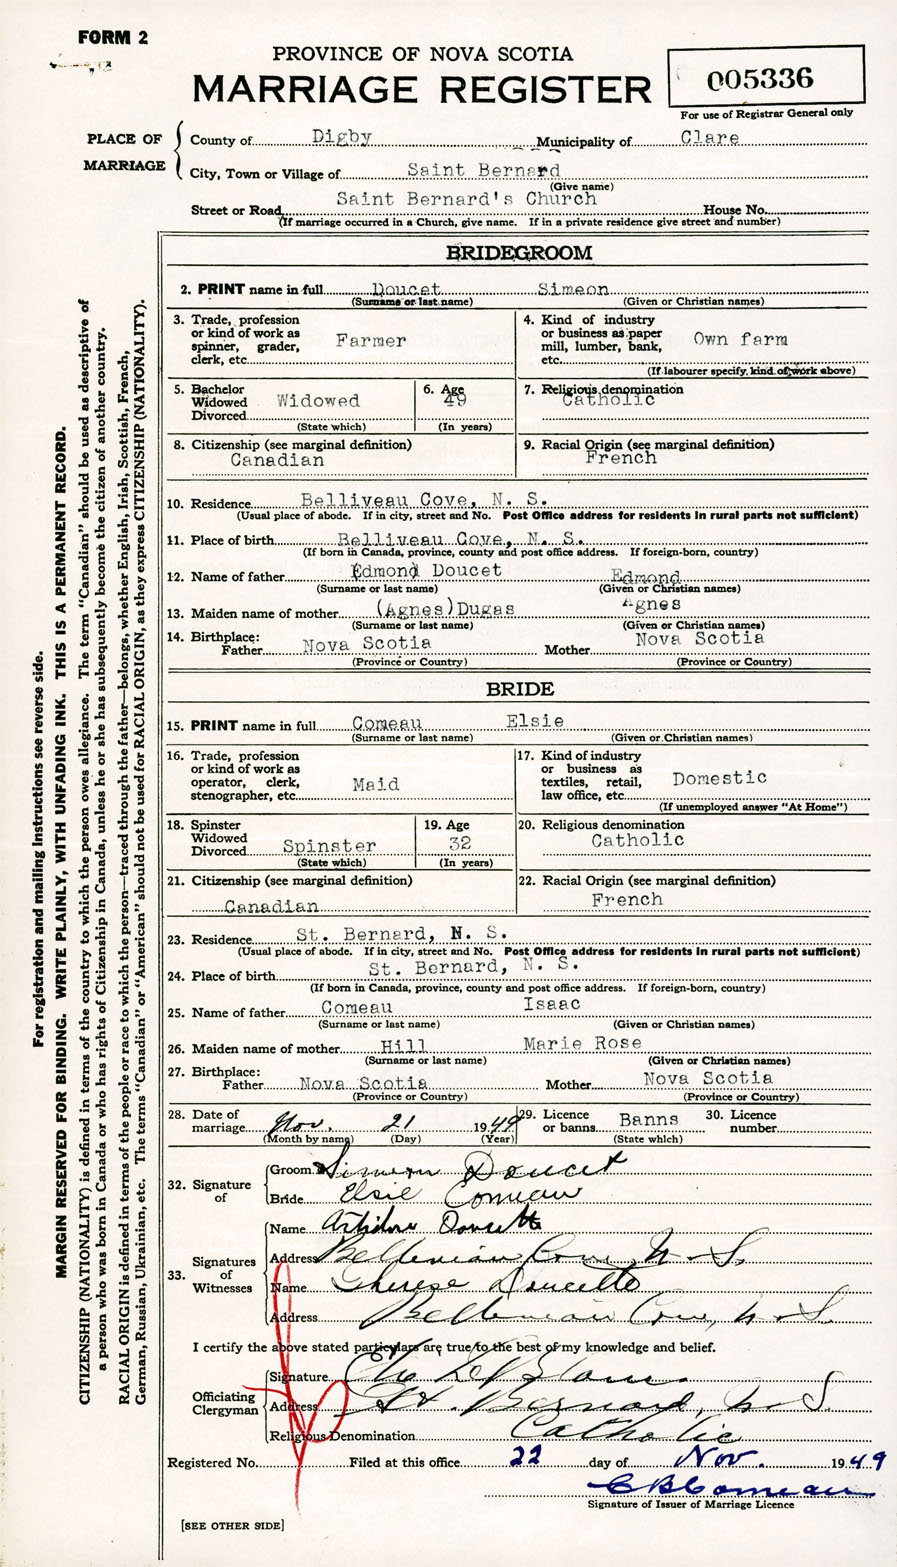 FORM 2
PROVINCE OF NOVA SCOTIA
MARRIAGE REGISTER
005336
For use of Registrar General only
PLACE OF MARRIAGE
County of Digby Municipality of Clare
City, Town or Village of Saint Bernard
(Give name)
Street or Road Saint Bernard's Church House No.
(If marriage occurred in a Church, give name. If in a private residence give street and number)
BRIDEGROOM
2. PRINT name in full Doucet Simeon
(Surname or last name) (Given or Christian names)
3. Trade, profession or kind of work as spinner, grader, clerk, etc. Farmer
4. Kind of industry or business as paper mill, lumber, bank, etc. Own farm
(If labourer specify kind of work above)
5. Bachelor Widowed Divorced Widowed
(State which)
6. Age 49
(In years)
7. Religious denomination
Catholic
8. Citizenship (see marginal definition)
Canadian
9. Racial Origin (see marginal definition)
French
10. Residence Belliveau Cove, N. S.
(Usual place of abode. If in city, street and No. Post Office address for residents in rural parts not sufficient)
11. Place of birth Belliveau Cove, N. S.
(If born in Canada, province, county and post office address. If foreign-born, country)
12. Name of father Edmond Doucet Edmond
(Surname or last name) (Given or Christian names)
13. Maiden name of mother (Agnes) Dugas Agnes
(Surname or last name) (Given or Christian names)
14. Birthplace:
Father Nova Scotia Mother Nova Scotia
(Province or Country) (Province or Country)
BRIDE
15. PRINT name in full Comeau Elsie
(Surname or last name) (Given or Christian names)
16. Trade, profession or kind of work as operator, clerk, stenographer, etc. Maid
17. Kind of industry or business as textiles, retail, law office, etc. Domestic
(If unemployed answer "At Home")
18. Spinster Widowed Divorced Spinster
(State which)
19. Age 32
(In years)
20. Religious denomination
Catholic
21. Citizenship (see marginal definition)
Canadian
22. Racial Origin (see marginal definition)
French
23. Residence St. Bernard, N. S.
(Usual place of abode. If in city, street and No. Post Office address for residents in rural parts not sufficient)
24. Place of birth St. Bernard, N. S.
(If born in Canada, province, county and post office address. If foreign-born, country)
25. Name of father Comeau Isaac
(Surname or last name) (Given or Christian names)
26. Maiden name of mother Hill Marie Rose
(Surname or last name) (Given or Christian names)
27. Birthplace:
Father Nova Scotia Mother Nova Scotia
(Province or Country) (Province or Country)
28. Date of marriage Nov. 21 1949
(Month by name) (Day) (Year)
29. Licence or banns Banns
(State which)
30. Licence number
32. Signature of
Groom Simeon Doucet
Bride Elsie Comeau
33. Signatures of Witnesses
Name Doucette
Address Belliveau Cove, N. S.
Name Therese Doucette
Address Belliveau Cove, N. S.
I certify the above stated particulars are true to the best of my knowledge and belief.
Officiating Clergyman
Signature
Address St. Bernard, N. S.
Religious Denomination Catholic
Registered No. Filed at this office 22 day of Nov. 1949
C B Comeau
Signature of Issuer of Marriage Licence
[SEE OTHER SIDE]
For registration and mailing instructions see reverse side.
MARGIN RESERVED FOR BINDING. WRITE PLAINLY, WITH UNFADING INK. THIS IS A PERMANENT RECORD.
CITIZENSHIP (NATIONALITY) is defined in terms of the country to which the person owes allegiance. The term "Canadian" should be used as descriptive of
a person who was born in Canada or who has rights of Citizenship in Canada, unless he or she has subsequently become the citizen of another country.
RACIAL ORIGIN is defined in terms of the people or race to which the person—traced through the father—belongs, whether English, Irish, Scottish, French,
German, Russian, Ukrainian, etc. The terms "Canadian" or "American" should not be used for RACIAL ORIGIN, as they express CITIZENSHIP (NATIONALITY).